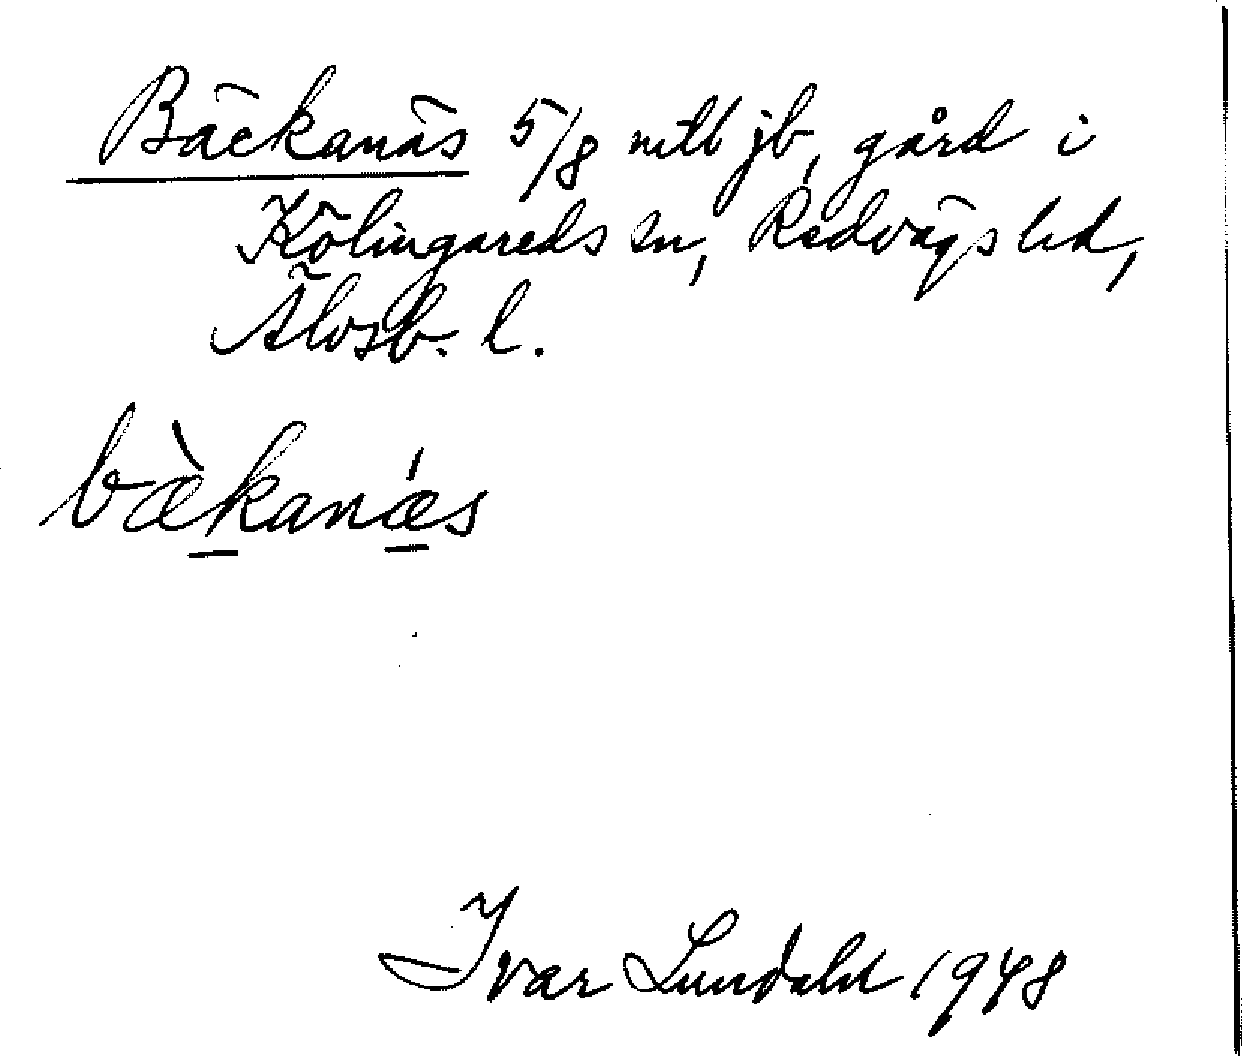 Bäckanäs 5/8 mtl jb, gård i
Kölingareds sn, Redvägs hd,
Älvsb. l.
bæ̀kanǽs
Ivar Lundahl 1948